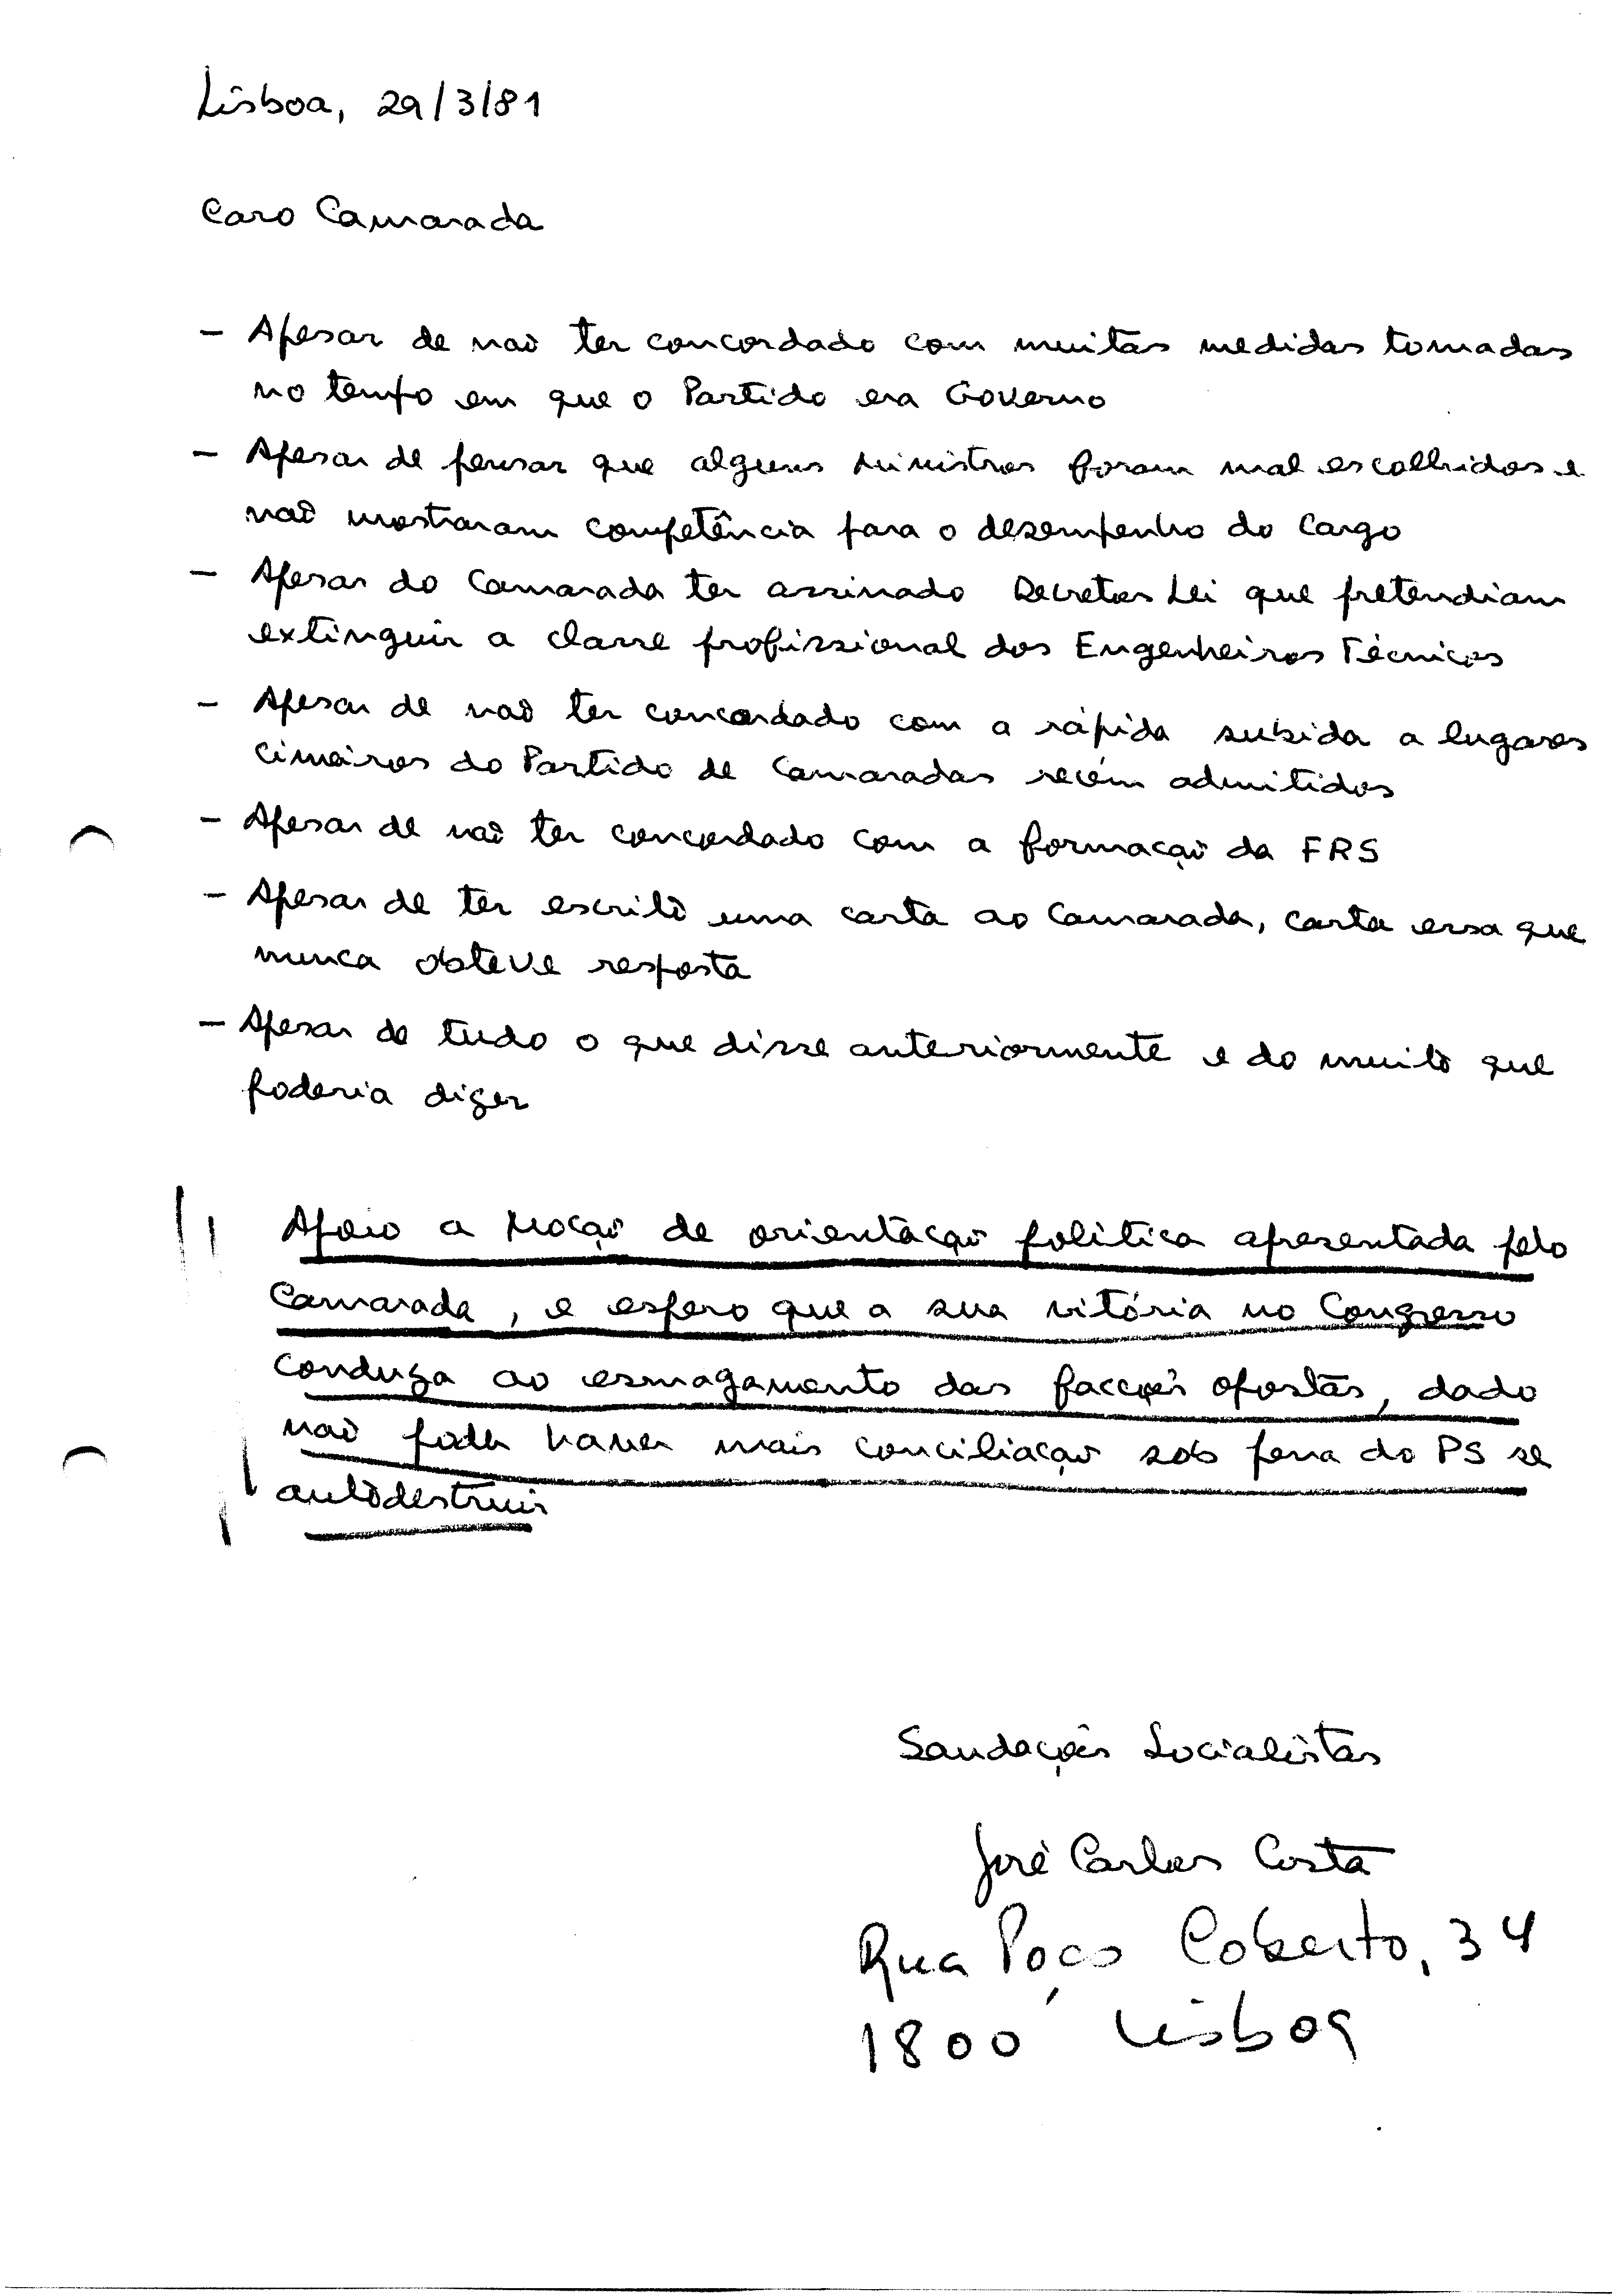 Lisboa, 29/3/81
Caro Camarada
- Apesar de não ter concordado com muitas medidas tomadas
no tempo em que o Partido era Governo
- Apesar de pensar que alguns Ministros foram mal escolhidos e
não mostraram competência para o desempenho do cargo
- Apesar do Camarada ter assinado Decretos Lei que pretendiam
extinguir a classe profissional dos Engenheiros Técnicos
- Apesar de não ter concordado com a rápida subida a lugares
cimeiros do Partido de Camaradas recém admitidos
- Apesar de não ter concordado com a formação da FRS
- Apesar de ter escrito uma carta ao Camarada, carta essa que
nunca obteve resposta
- Apesar de tudo o que disse anteriormente e do muito que
poderia dizer
Apoio a Moção de orientação política apresentada pelo
Camarada, e espero que a sua vitória no Congresso
conduza ao esmagamento das facções opostas, dado
não poder haver mais conciliação sob pena do PS se
autodestruir
Saudações Socialistas
José Carlos Costa
Rua Poço Coberto, 34
1800 Lisboa